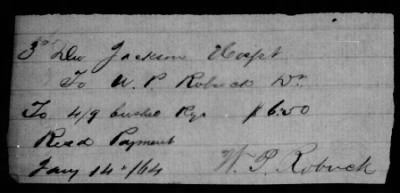 3d Div Jackson Hospt
To W. P. Robuck Dr
To 4/9 bushel Rye $6.50
Recd Payment
Jany 14th /64
W. P. Robuck